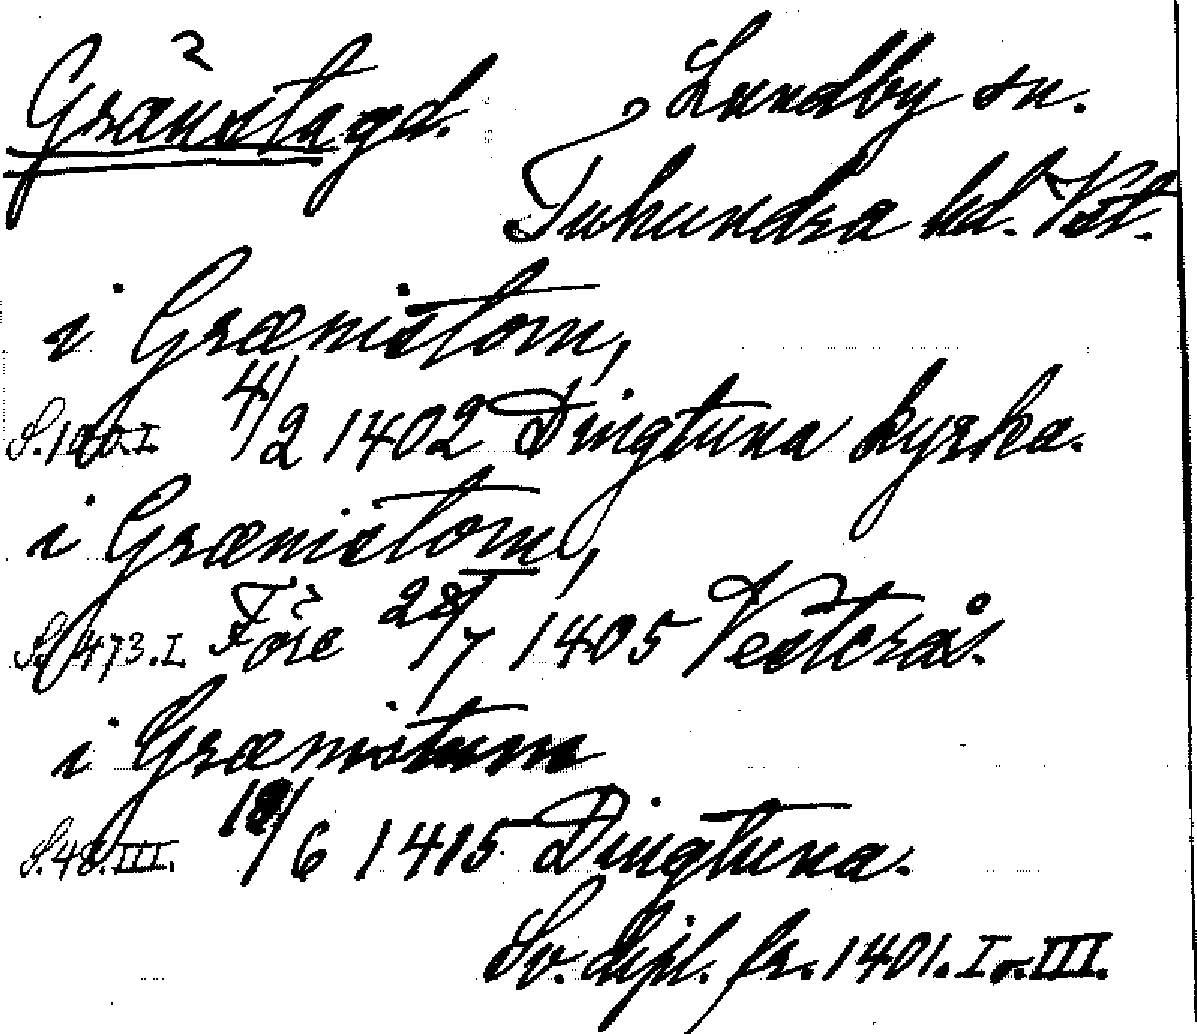 Gränsta gd. Lundby sn.
Tuhundra hd. Vstl.
i Grænistom,
S. 100. I. 4/2 1402 Dingtuna kyrka.
i Grænistom,
S. 473. I. Före 28/7 1405 Vesterås.
i Grænistum
S. 48. III. 18/6 1415 Dingtuna.
Sv. dipl. fr. 1401. I o. III.